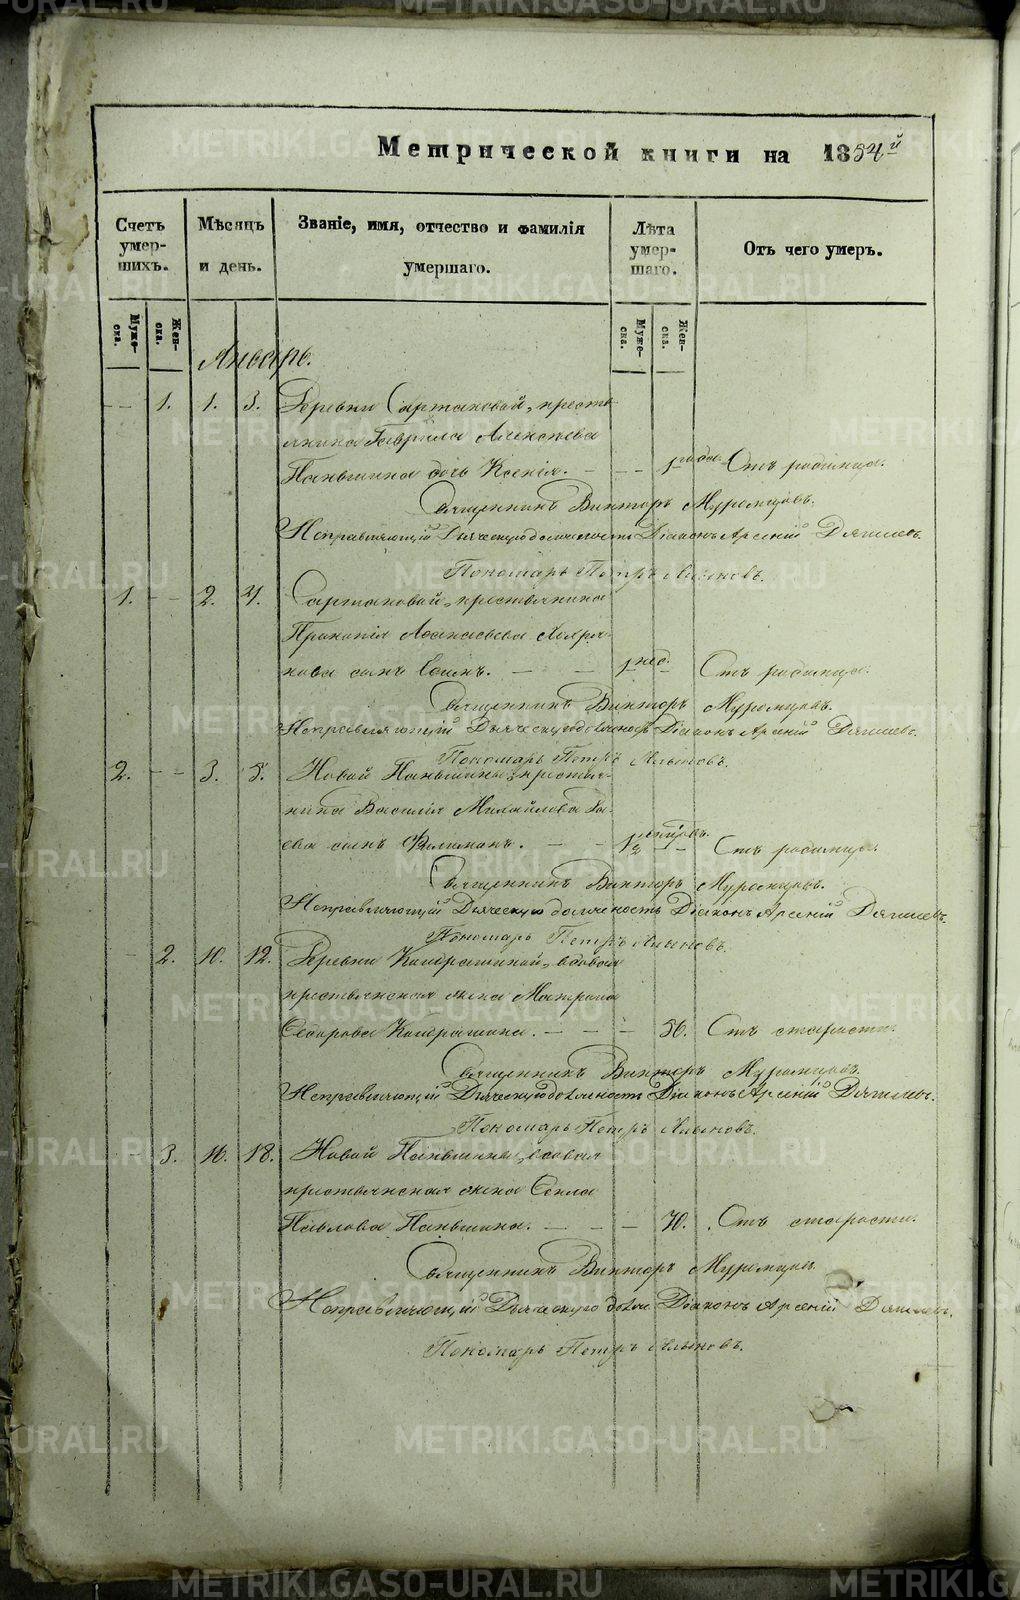 Метрической книги на 1854й
Счетъ умер- шихъ.
Мѣсяцъ и день.
Званіе, имя, отчество и фамилія умершаго.
Лѣта умер- шаго.
Отъ чего умеръ.
Муже- ска.
Жен- ска.
Муже- ска.
Жен- ска.
Январь.
1. 1. 3. Деревни Сартаковой, кресть
янина Гаврила Алексѣева
Паньшина дочь Ксенія. 1 года. Отъ родимца.
Священникъ Викторъ Муромцовъ.
Исправляющій Дьяческую должность Діаконъ Арсеній Дягилевъ.
Пономарь Петръ
1. 2. 4. Сартаковой, крестьянина
Прокопія
сынъ 1 нед. Отъ родимца.
Священникъ Викторъ Муромцовъ.
Исправляющій Дьяческую должность Діаконъ Арсеній Дягилевъ.
Пономарь Петръ
2. 3. 5. Новой Паньшины, крестья-
нина Василія Михайлова
сынъ Филимонъ. 1/2 Отъ родимца
Священникъ Викторъ Муромцовъ.
Исправляющій Дьяческую должность Діаконъ Арсеній Дягилевъ.
Пономарь Петръ
2. 10. 12. Деревни вдовая
крестьянская жена Матрона
56. Отъ старости.
Священникъ Викторъ Муромцовъ.
Исправляющій Дьяческую должность Діаконъ Арсеній Дягилевъ.
Пономарь Петръ
3. 16. 18. Новой Паньшины, вдовая
крестьянская жена Секла
Павлова Паньшина. 70. Отъ старости.
Священникъ Викторъ Муромцовъ
Исправляющій Дьяческую долж. Діаконъ Арсеній Дягилевъ.
Пономарь Петръ
METRIKI.GASO-URAL.RU